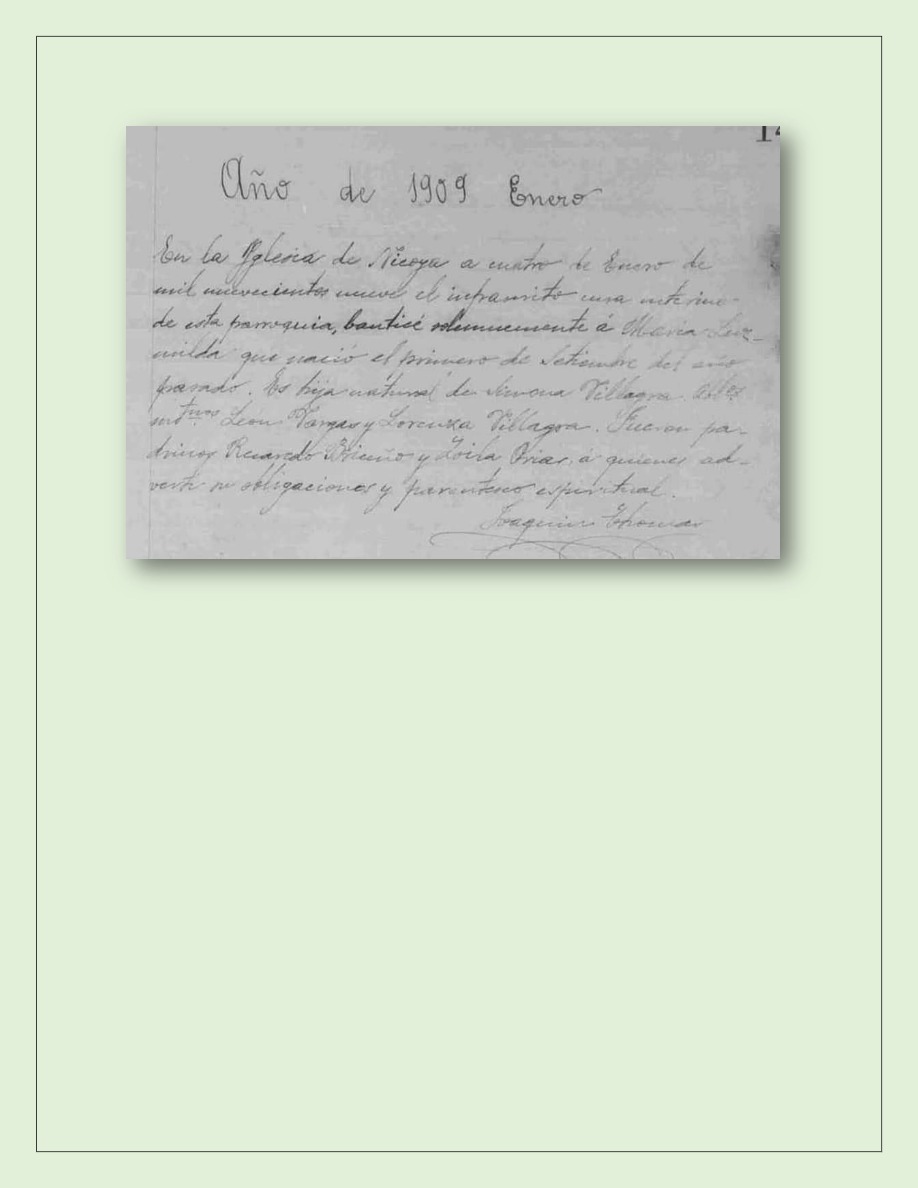 14
Año de 1909 Enero
En la Yglesia de Nicoya a cuatro de Enero de
mil nuevecientos nueve el infrascrito cura interino
de esta parroquia, bauticé solemnemente á Maria Luz-
milda que nació el primero de Setiembre del año
pasado. Es hija natural de Simona Villagra. Ablos
mtnos Leon Vargas y Lorenza Villagra. Fueron pa-
drinos Ricardo Briceño y Zoila Orias á quienes ad-
vertí su obligaciones y parentesco espiritual.
Joaquin Thomas